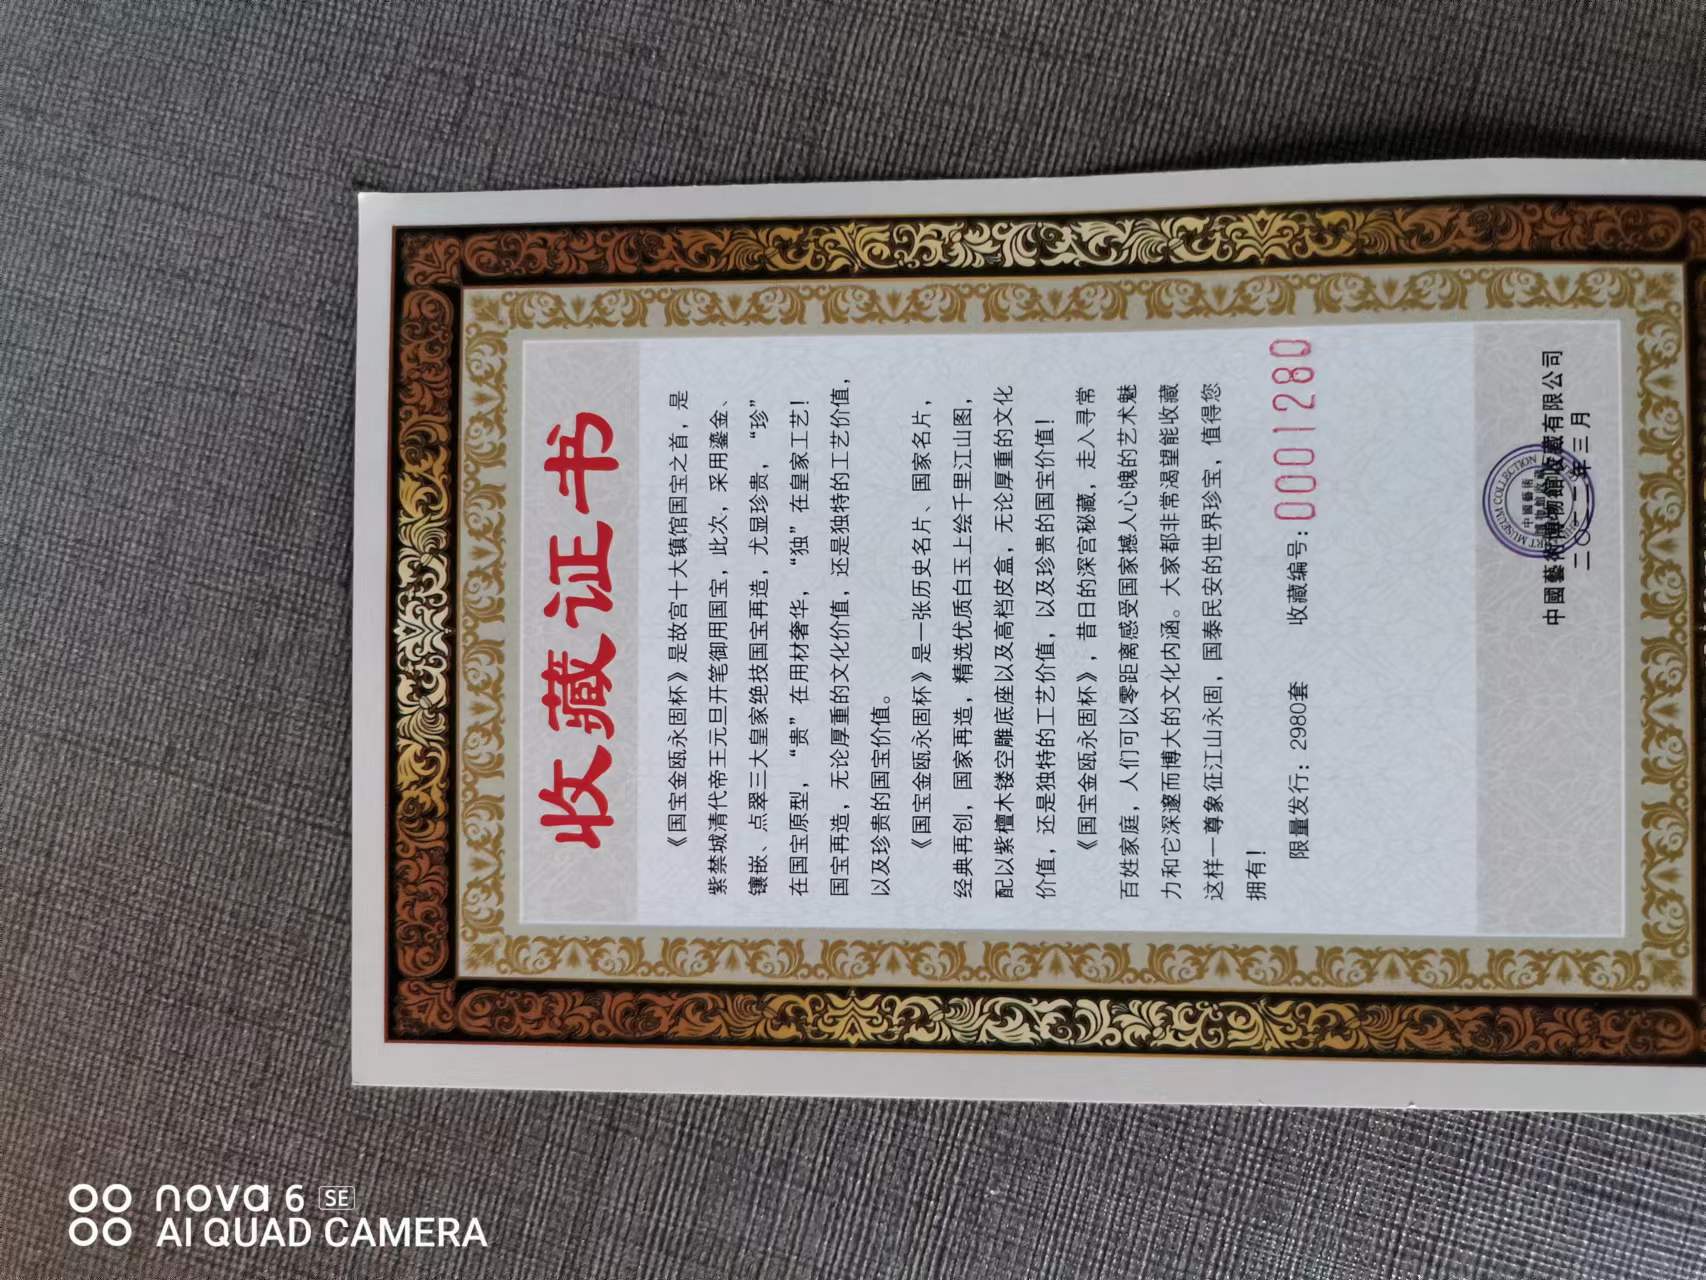 收藏证书
《国宝金瓯永固杯》是故宫十大镇馆国宝之首，是
紫禁城清代帝王元旦开笔御用国宝，此次，采用鎏金、
镶嵌、点翠三大皇家绝技国宝再造，尤显珍贵，“珍”
在国宝原型，“贵”在用材奢华，“独”在皇家工艺！
国宝再造，无论厚重的文化价值，还是独特的工艺价值，
以及珍贵的国宝价值。
《国宝金瓯永固杯》是一张历史名片、国家名片，
经典再创，国家再造，精选优质白玉上绘千里江山图，
配以紫檀木镂空雕底座以及高档皮盒，无论厚重的文化
价值，还是独特的工艺价值，以及珍贵的国宝价值！
《国宝金瓯永固杯》，昔日的深宫秘藏，走入寻常
百姓家庭，人们可以零距离感受国家撼人心魄的艺术魅
力和它深邃而博大的文化内涵。大家都非常渴望能收藏
这样一尊象征江山永固，国泰民安的世界珍宝，值得您
拥有！
限量发行：2980套 收藏编号：0001280
中國藝術博物館收藏有限公司
二〇一二年三月
ART MUSEUM COLLECTION
中國藝術
nova 6 SE
AI QUAD CAMERA